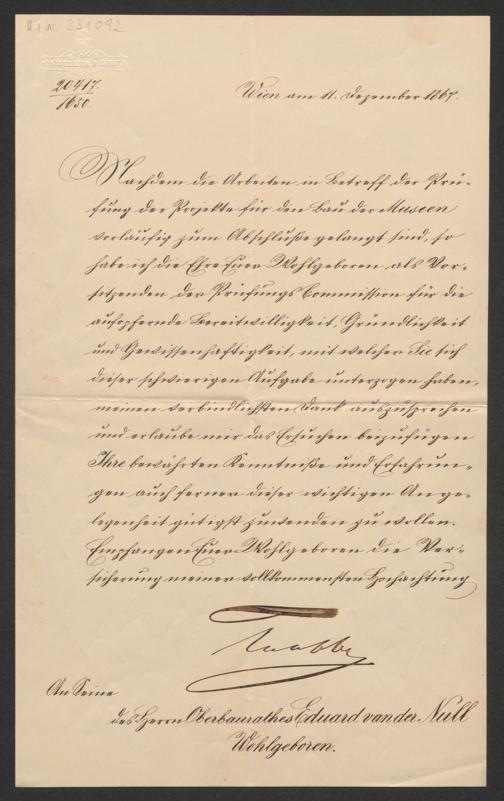 I.N. 231092
20417.
1650.
Wien am 11. Dezember 1867.
Nachdem die Arbeiten in Betreff der Prü-
fung der Projekte für den Bau der Museen
vorläufig zum Abschluße gelangt sind, so
habe ich die Ehre Euer Wohlgeboren als Vor-
sitzenden der Prüfungs Commission für die
aufopfernde Bereitwilligkeit, Gründlichkeit
und Gewissenhaftigkeit, mit welcher Sie sich
dieser schwierigen Aufgabe unterzogen haben,
meinen verbindlichsten Dank auszusprechen
und erlaube mir das Ersuchen beizufügen
Ihre bewährten Kenntniße und Erfahrun-
gen auch ferner dieser wichtigen Ange-
legenheit gütigst zuwenden zu wollen.
Empfangen Euer Wohlgeboren die Ver-
sicherung meiner vollkommensten Hochachtung
Taaffe
An Seine
des Herrn Oberbaurathes Eduard van der Nüll
Wohlgeboren.